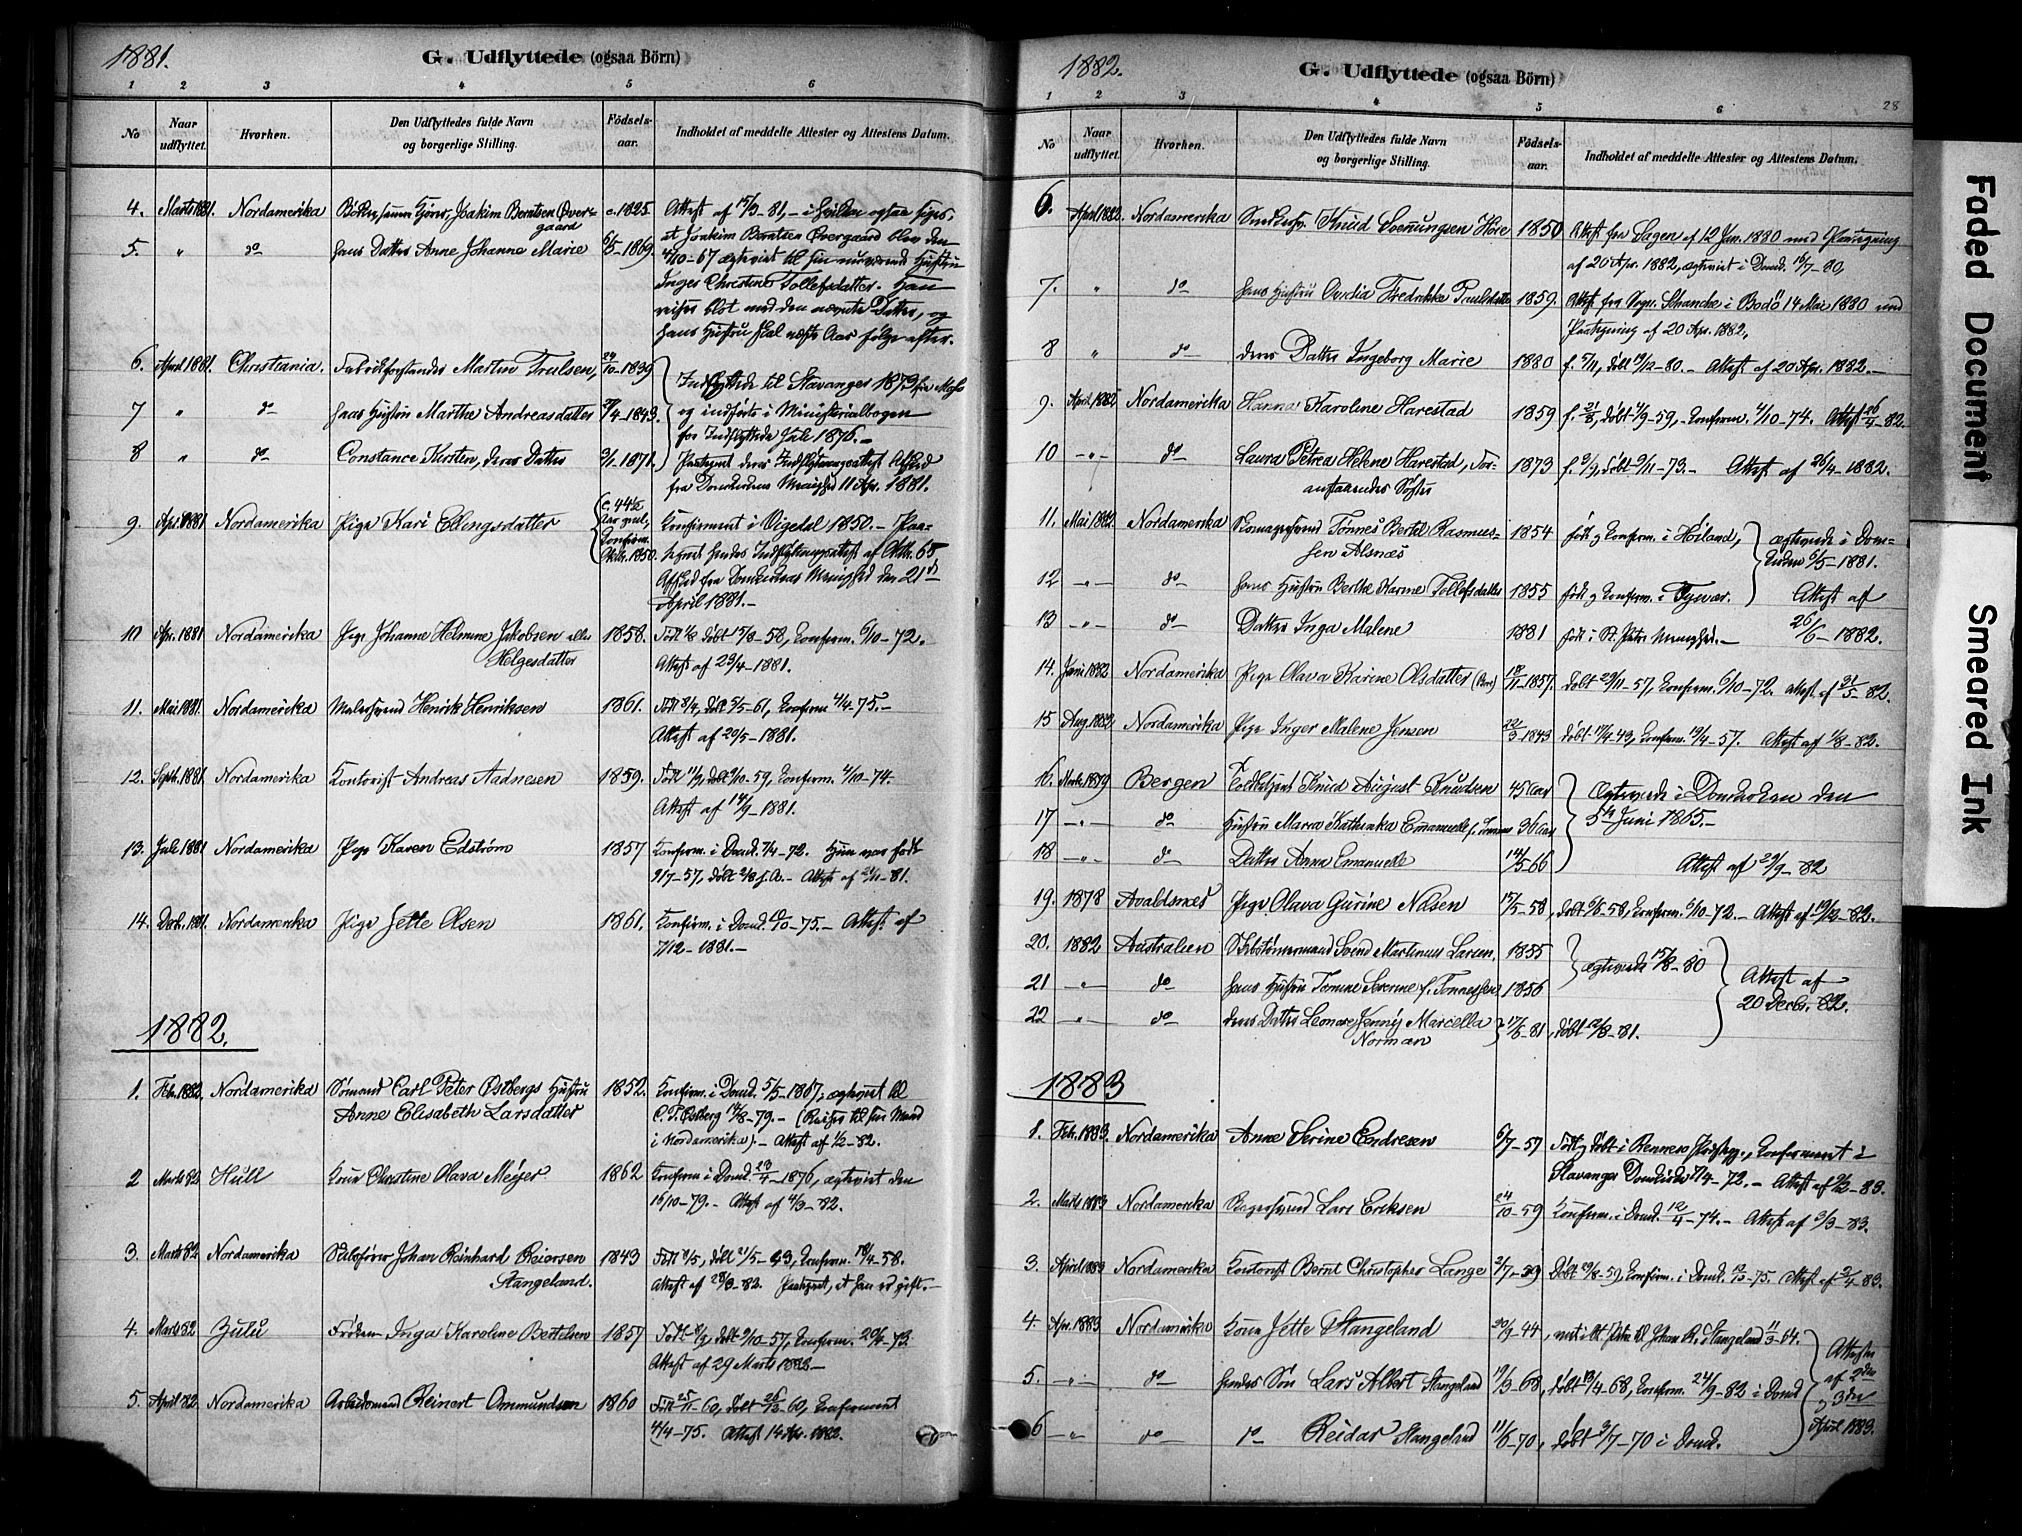 1881.
G. Udflyttede (ogsaa Börn)
1 2 3 4 5 6
No
Naar udflyttet.
Hvorhen.
Den Udflyttedes fulde Navn
og borgerlige Stilling.
Födsels-
aar.
Indholdet af meddelte Attester og Attestens Datum.
4. Marts 1881. Nordamerika Joakim Berntsen Øver- c. 1825 Attest af 15/3-81,
gaard
5. " do hans Datter Anne Johanne Marie 6/5-1869. at Joakim Berntsen Øvergaard blev den
4/10-67 ægteviet til sin nuværende Hustru
Inger Christine Tollefsdatter. Han
reiser blot med den nævnte Datter, og
hans Hustru skal næste Aar følge efter.
6. April 1881. Christiania. Martin Trulsen, 24/10-1839 Indflyttede til Stavanger 1873 fra Moss
7 " do hans Hustru Marthe Andreasdatter 1843. og indførte i Ministerialbogen
for Indflyttede Juli 1876.-
8 " do Constance Kirsten, deres Datter 1871. Paategnet deres Indflytningsattest Afsked
fra Domkirkens Menighed 11 Apr. 1881.
9. Apr. 1881 Nordamerika Pige Kari Ellingsdatter c. 44½ Aar gml., Konfirm. 1850. Konfirmeret i Vigedal 1850.- Paa-
tegnet hendes Indflytningsattest
Afsked fra Domkirkens Menighed den 21de
April 1881.-
10 Apr. 1881 Nordamerika Pige Johanne Helmine Jakobsen eller 1858. Konfirm. 6/10-72.
Helgesdatter Attest af 23/4-1881.
11. Mai 1881. Nordamerika Malersvend Henrik Henriksen 1861. Født 8/4, døbt 5/5-61, Konfirm. 4/4-75.-
Attest af 20/5-1881.
12. Septr. 1881 Nordamerika Kontorist Andreas Aadnesen 1859. Født 11/9, døbt 9/10-59, Konfirm. 4/10-74.
Attest af 14/9 1881.
13. Juli 1881 Nordamerika Pige Karen Edstrøm 1857 Konfirm. i Domk. 7/4-72. Hun var født
9/7-57, døbt
14. Decb. 1881. Nordamerika Pige Jette Olsen 1861. Konfirm. i Domk. 10/10-75.- Attest af
7/12-1881.-
1882.
1. Febr. 1882 Nordamerika Sømand Carl Peter Østbergs Hustru 1852. Konfirm. i Domk. 5/5-1867, ægteviet til
Anne Elisabeth Larsdatter C. P. Østberg 17/8-79.- (Reiser til sin Mand
i Nordamerika).- Attest af 1/2-82.
2 Marts 82 Hull Kone Christine Olava Meyer 1862 Konfirm i Domk. 23/4-1876, ægteviet den
16/10-79.- Attest af 4/3-82.
3. Marts 82 Nordamerika Johan Reinhard Reiersen 1843 Født 8/5, døbt 21/5-43, Konfirm. 18/4-58.
Stangeland. Attest af 28/3-82. Paategnet, at han er gift.-
4. Marts 82 Zulu Frøken Inga Karoline Bertelsen 1857 Født døbt 9/10-57, Konfirm.
Attest af 29 Marts 1882-
5. April 82 Nordamerika Arbeidsmand Reinert Ommundsen 1860 Født 25/11-60, Døbt 26/12-60, Konfirmeret
4/4-75. Attest 14 Apr. 1882.
1882.
G. Udflyttede (ogsaa Börn)
28
1 2 3 4 5 6
No
Naar udflyttet.
Hvorhen.
Den Udflyttedes fulde Navn
og borgerlige Stilling.
Födsels-
aar.
Indholdet af meddelte Attester og Attestens Datum.
6. April 1882. Nordamerika Knud 1850 Attest fra 12 Jan. 1880 med Paategning
af 20 Apr. 1882, ægteviet i Domk. 16/7-80,
7. " do hans Hustru Ovidia Fredrikke Paulsdatter 1859. Attest fra Sogn. Schancke i Bodø 14 Mai 1880 med
Paategning af 20 Apr. 1882,
8 " do deres Datter Ingeborg Marie 1880 f. 5/11, døbt 19/12-80.- Attest af 20 Apr. 1882.-
9. April 1882 Nordamerika Hanna Karoline Harestad 1859 f. 21/8, døbt 4/9-59, Konfirm. 4/10-74. Attest 26/4-82.
10 -"- do Laura Petrea Helene Harestad, For- 1873 f. 9/9, døbt 9/11-73.- Attest af 26/4-1882.
anstaaendes Søster
11. Mai 1882. Nordamerika Tønnes Bertel Rasmus- 1854 født og Konfirm. i Høiland, ægteviede i Dom-
sen Alsnæs kirken 6/5-1881.
12 -"- do hans Hustru Berthe Karine Tollefsdatter 1855 født og Konfirm. i Tysvær. Attest af
13 -"- do Datter Inga Malene 1881 født i St. Petri Menighed.- 26/6-1882.
14. Juni 1882 Nordamerika Pige Olava Karine Olsdatter 18/11-1857. døbt 29/11-57, Konfirm. 6/10-72. Attest af 31/5-82.
15 Aug. 1882 Nordamerika Pige Inger Malene Jensen 22/3-1843 døbt 17/4-43, Konfirm. 19/4-57. Attest af 1/8-82.
16. 1879 Bergen Toldbetjent Knud August Knudsen 45 Aar Ægteviede i Domkirken den
17 -"- do Hustru Maria Kathinka Emanuele 36 Aar 5te Juni 1865.-
18 -"- do Datter Anna Emanuele 14/5-66 Attest af 29/9-82
19. 1878 Avaldsnes Pige Olava Gurine Nilsen 15/5-58, Konfirm. 6/10-72.- Attest af 19/12-82.
20. 1882 Australien Skibstømmermand Svend Martinus Larsen, 1855 ægteviede 15/8-80 Attest af
21 -"- do hans Hustru Tomine Severine f. Tønnessen, 1856 20 Decbr. 82.
22 -"- do deres Datter Leonore Jenny Marcella 17/6-81, døbt
Norman
1883
1. Febr. 1883. Nordamerika Anne Serine Endresen 6/7-57 Født og døbt i Rennesø Præstegj., Konfirmeret i
Stavanger Domkirke 7/4-72.- Attest
2. Marts 1883 Nordamerika Bagersvend Lars Eriksen 24/10-59 Konfirm. i Domk. 12/4-74.- Attest af 3/3-83.
3. April 1883 Nordamerika Kontorist Bernt Christopher Lange 2/7-59 Døbt Konfirm. i Domk. 10/10-75. Attest af 2/4-83.
4. Apr. 1883 Nordamerika Kone Jette Stangeland 20/9-44, viet i St. Petri til Johan R. Stangeland 11/3-64.
5. -"- do hendes Søn Lars Albert Stangeland 19/3-68, døbt 13/4-68, Konfirm. 24/9-82 i Domk
6 -"- do do Reidar Stangeland 11/6-70, døbt 3/7-70 i Domk.
Attester
af 2den
og 3die
April 1883.
Faded Document
Smeared Ink